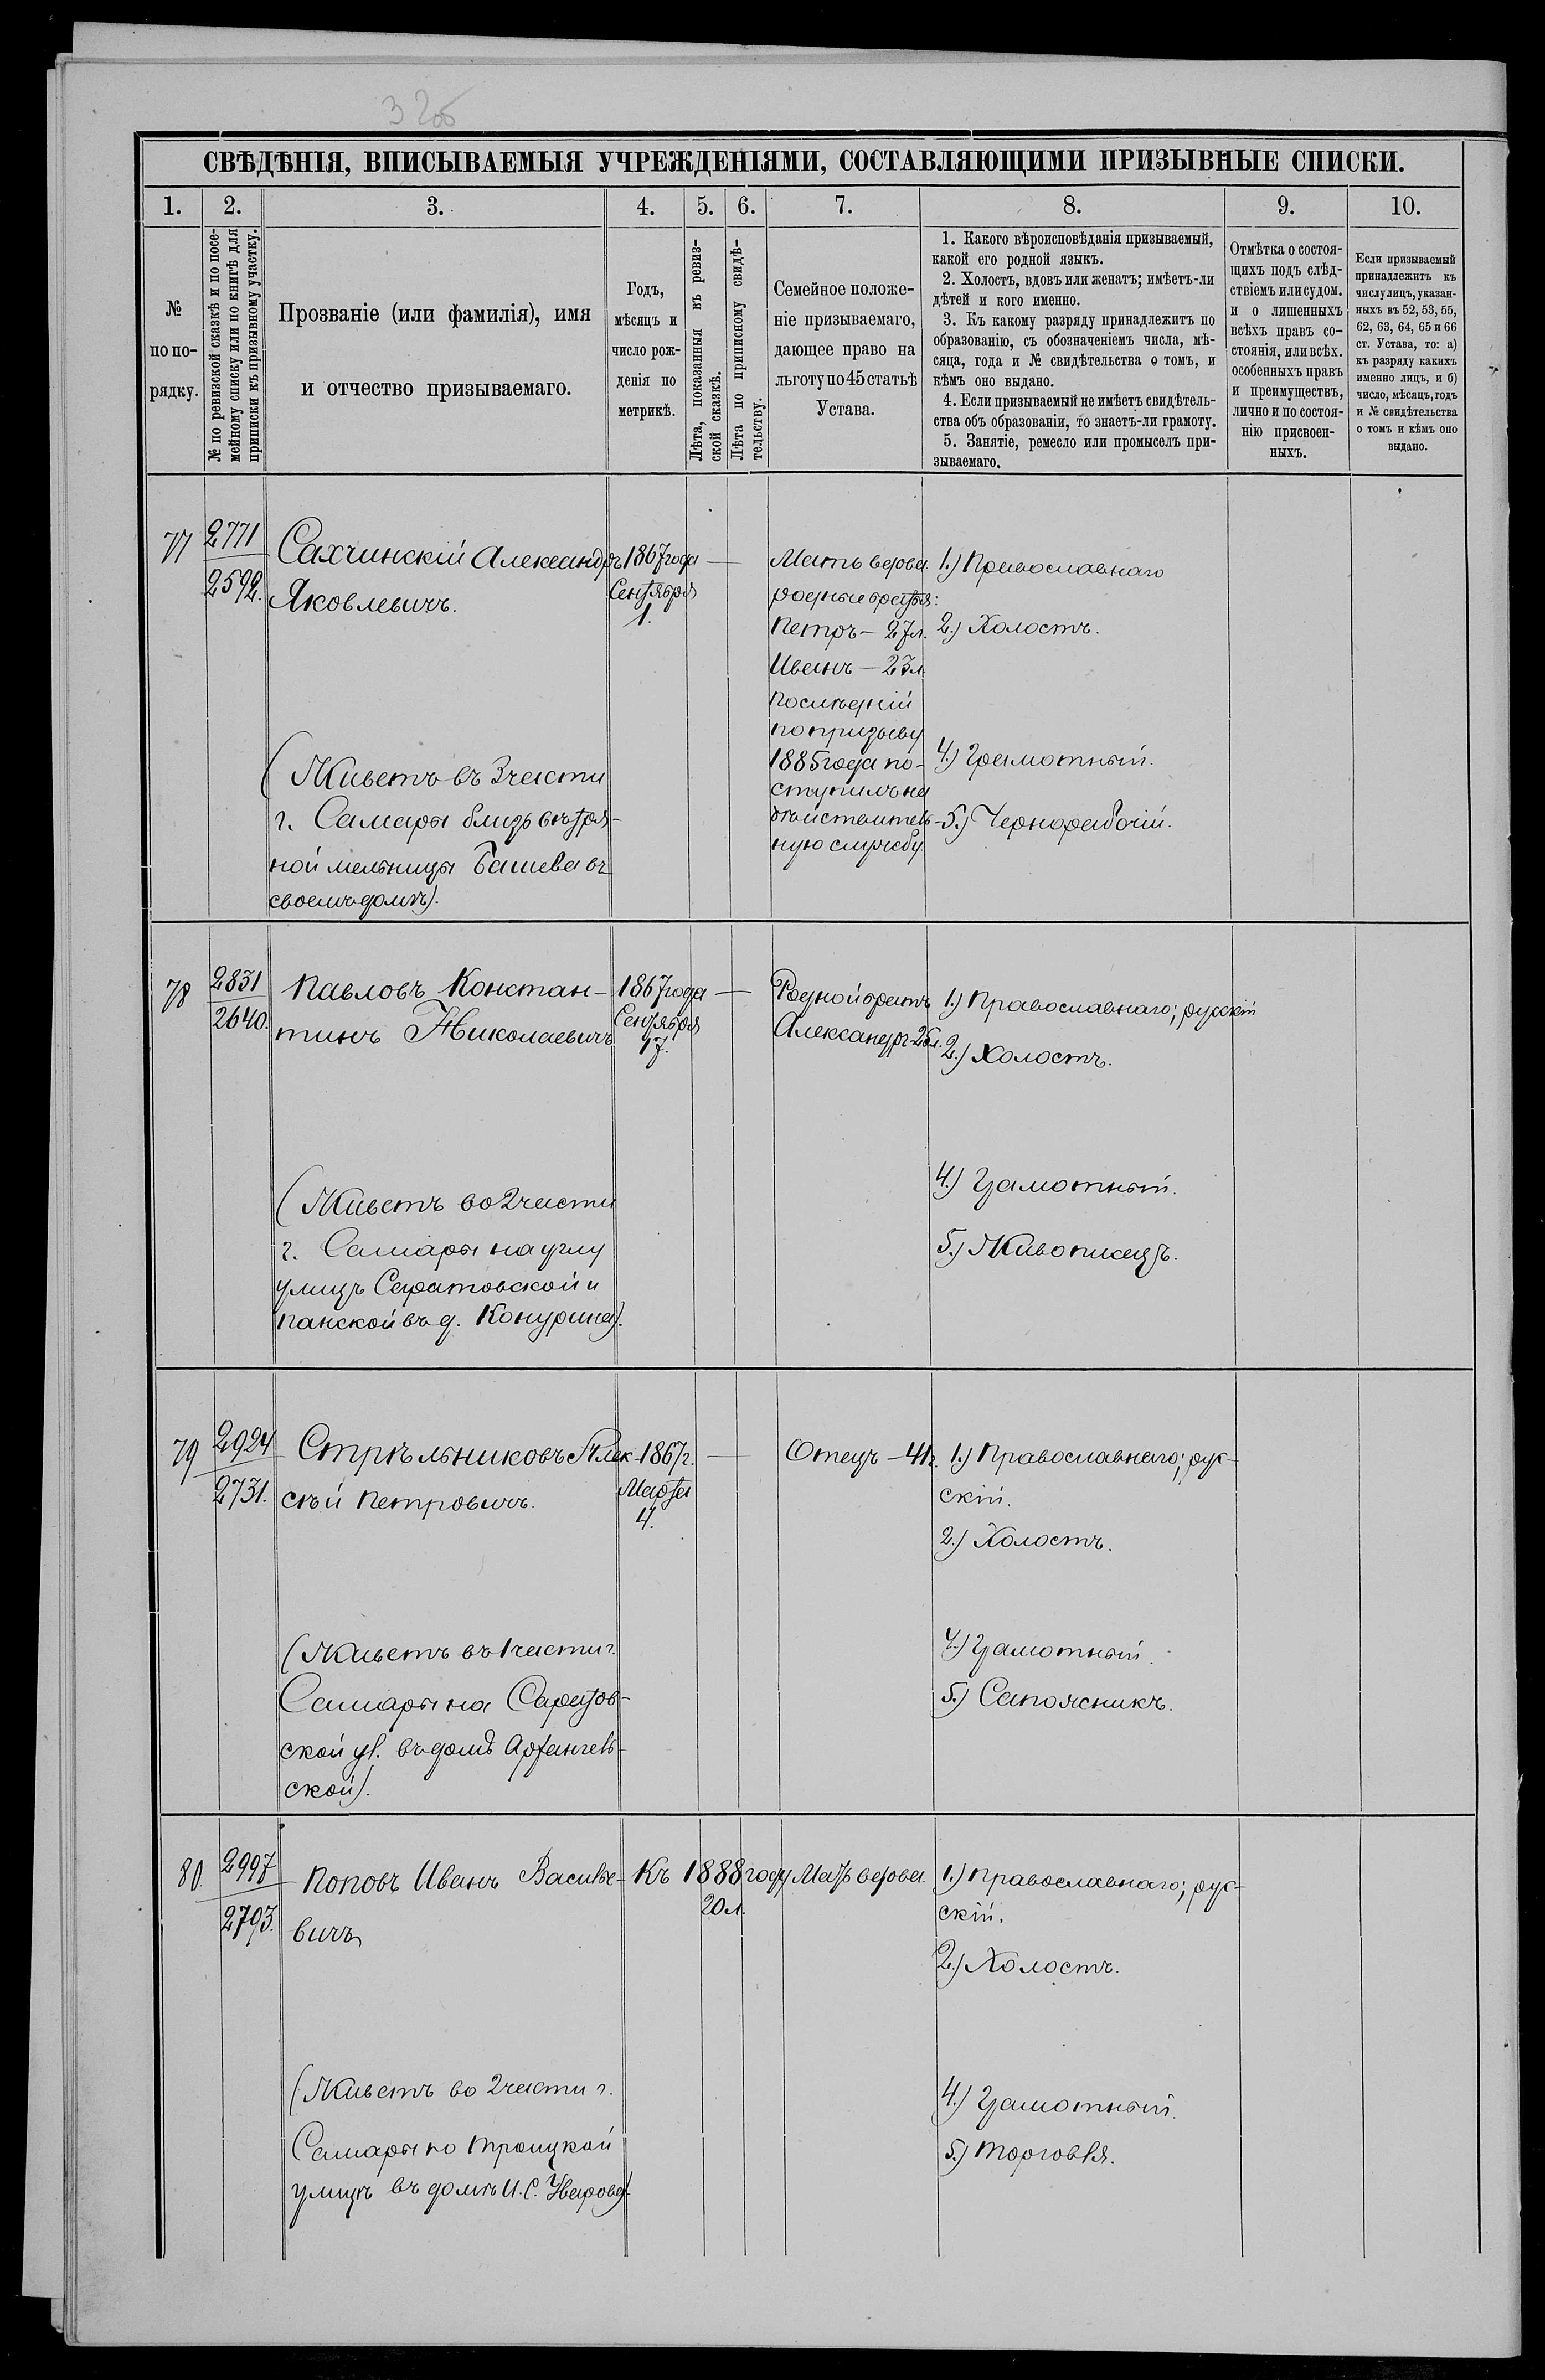 32об
СВѢДѢНІЯ, ВПИСЫВАЕМЫЯ УЧРЕЖДЕНІЯМИ, СОСТАВЛЯЮЩИМИ ПРИЗЫВНЫЕ СПИСКИ.
1. 2. 3. 4. 5. 6. 7. 8. 9. 10.
№
по по-
рядку.
№ по ревизской сказкѣ и по посе-
мейному списку или по книгѣ для
приписки къ призывному участку.
Прозваніе (или фамилія), имя
и отчество призываемаго.
Годъ,
мѣсяцъ и
число рож-
денія по
метрикѣ.
Лѣта, показанныя въ ревиз-
ской сказкѣ.
Лѣта по приписному свидѣ-
тельству.
Семейное положе-
ніе призываемаго,
дающее право на
льготу по 45 статьѣ
Устава.
1. Какого вѣроисповѣданія призываемый,
какой его родной языкъ.
2. Холостъ, вдовъ или женатъ; имѣетъ-ли
дѣтей и кого именно.
3. Къ какому разряду принадлежитъ по
образованію, съ обозначеніемъ числа, мѣ-
сяца, года и № свидѣтельства о томъ, и
кѣмъ оно выдано.
4. Если призываемый не имѣетъ свидѣтель-
ства объ образованіи, то знаетъ-ли грамоту.
5. Занятіе, ремесло или промыселъ при-
зываемаго.
Отмѣтка о состоя-
щихъ подъ слѣд-
ствіемъ или судом.
и о лишенныхъ
всѣхъ правъ со-
стоянія, или всѣх.
особенныхъ правъ
и преимуществъ,
лично и по состоя-
нію присвоен-
ныхъ.
Если призываемый
принадлежитъ къ
числу лицъ, указан-
ныхъ въ 52, 53, 55,
62, 63, 64, 65 и 66
ст. Устава, то: а)
къ разряду какихъ
именно лицъ, и б)
число, мѣсяцъ, годъ
и № свидѣтельства
о томъ и кѣмъ оно
выдано.
77
2771
2592.
Сахчинскій Александръ
Яковлевичъ.
(Живетъ въ 3 части
г. Самары близъ вѣтря-
ной мельницы Башева въ
своемъ домѣ).
1867 года
Сентября
1.
—
Мать вдова
родные братья:
Петръ — 27 л.
Иванъ — 23 л.
послѣдній
по призыву
1885 года по-
ступилъ на
дѣйствитель-
ную службу
1.) Православнаго
2.) Холостъ.
4.) Грамотный.
5.) Чернорабочій.
78
2831
2640.
Павловъ Констан-
тинъ Николаевичъ
(Живетъ во 2 части
г. Самары на углу
улицъ Саратовской и
Панской въ д. Конурина).
1867 года
Сентября
17.
—
Родной братъ
Александръ 26 л.
1.) Православнаго; русскій
2.) Холостъ.
4.) Грамотный.
5.) Живописецъ.
79
2924
2731.
Стрѣльниковъ Алек-
сѣй Петровичъ.
(Живетъ въ 1 части г.
Самары на Саратов-
ской ул. въ домѣ Архангель-
ской).
1867 г.
Марта
4.
—
Отецъ — 41 г.
1.) Православнаго; рус-
скій.
2.) Холостъ.
4.) Грамотный.
5.) Сапожникъ.
80
2997
2793.
Поповъ Иванъ Василье-
вичъ
(Живетъ во 2 части г.
Самары по Троицкой
улицѣ въ домѣ И. С. Уварова).
Къ 1888 году
20 л.
Мать вдова
1.) Православнаго; рус-
скій.
2.) Холостъ.
4.) Грамотный.
5.) Торговля.